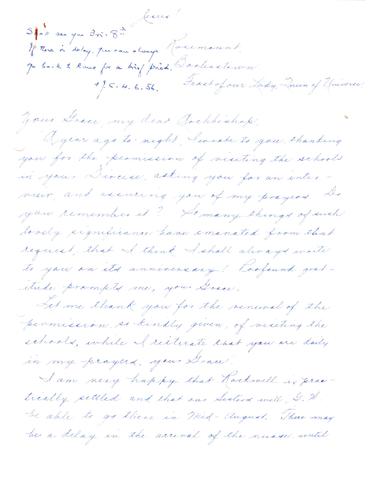 Jesus!
Rosemount,
Booterstown
Feast of our Lady, Queen of Universe
S/o see you Fri. 8th
If there is delay, you can always
go back to Rome for a brief period.
Your Grace, my dear Archbishop,
A year ago to-night, I wrote to you, thanking
you for the permission of visiting the schools
in your Diocese, asking you for an inter-
view and assuring you of my prayers. Do
you remember it? So many things of such
lovely significance have emanated from that
request, that I think I shall always write
to you on its anniversary! Profound grat-
itude prompts me, your Grace.
Let me thank you for the renewal of the
permission so kindly given, of visiting the
schools, while I reiterate that you are daily
in my prayers, your Grace.
I am very happy that Rockwell is prac-
tically settled and that our Sisters will, G.W.
be able to go there in Mid-August. There may
be a delay in the arrival of the nurse until